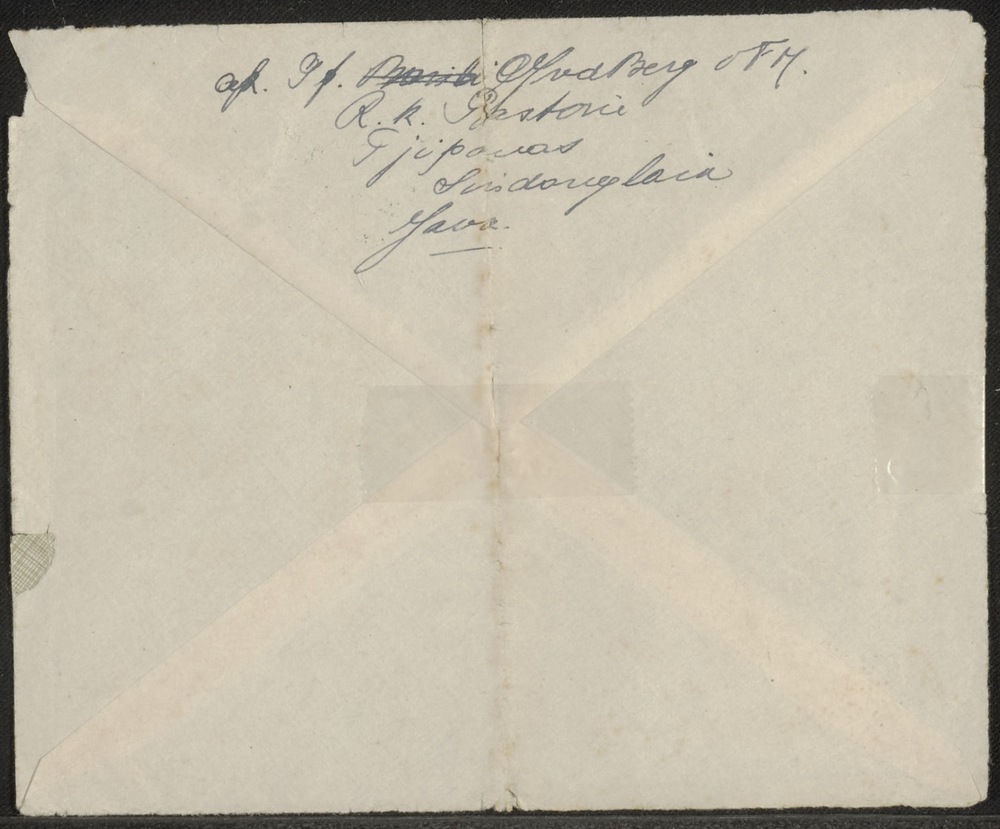 afz. Pf. vdBerg OFM.
R. K. Pastorie
Tjipanas
Sindanglaia
Java.